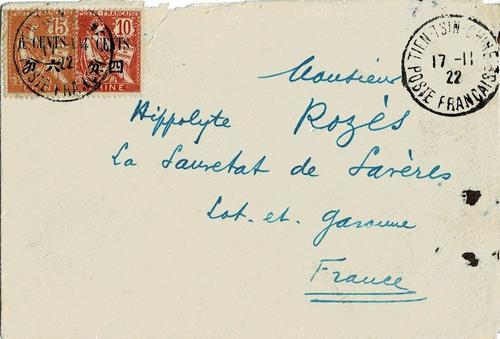 15 10
POSTE FRANÇAISE
6 CENTS 4 CENTS
22
POSTE FRANÇ
CHINE
TIEN-TSIN-CHINE
17-11
22
POSTE FRANÇAISE
Monsieur
Hippolyte Rozès
La Sauvetat de Savères
Lot-et-Garonne
France